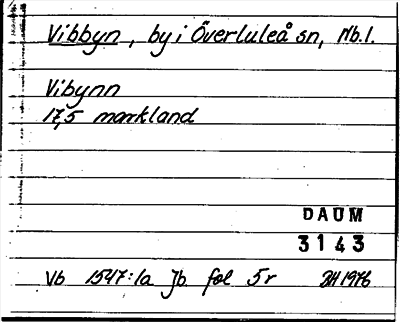 Vibbyn, by i Överluleå sn, Nb.l.
Vibynn
17,5 markland
DAUM
3143
Vb 1547:1a Jb. fol 5r BH 1976